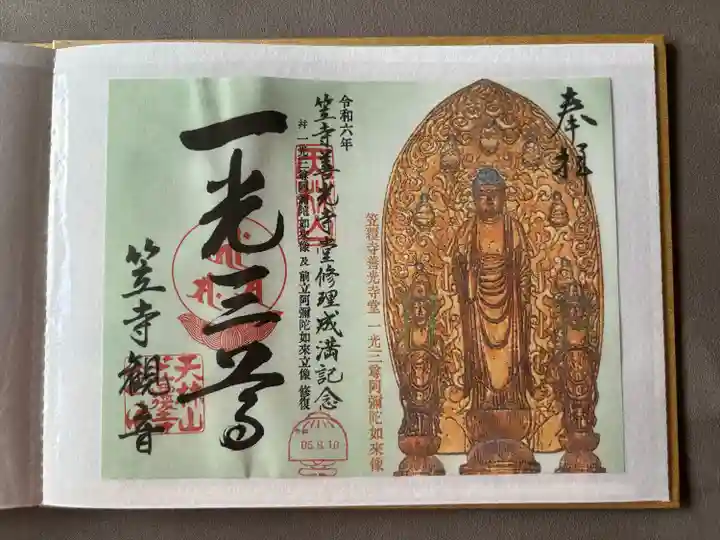 奉拝
笠覆寺善光寺堂 一光三尊阿彌陀如来像
令和六年
笠寺善光寺堂修理成満記念
并 一光三尊阿彌陀如来像 及 前立阿彌陀如来立像 修復
一光三尊
笠寺観音
天林山